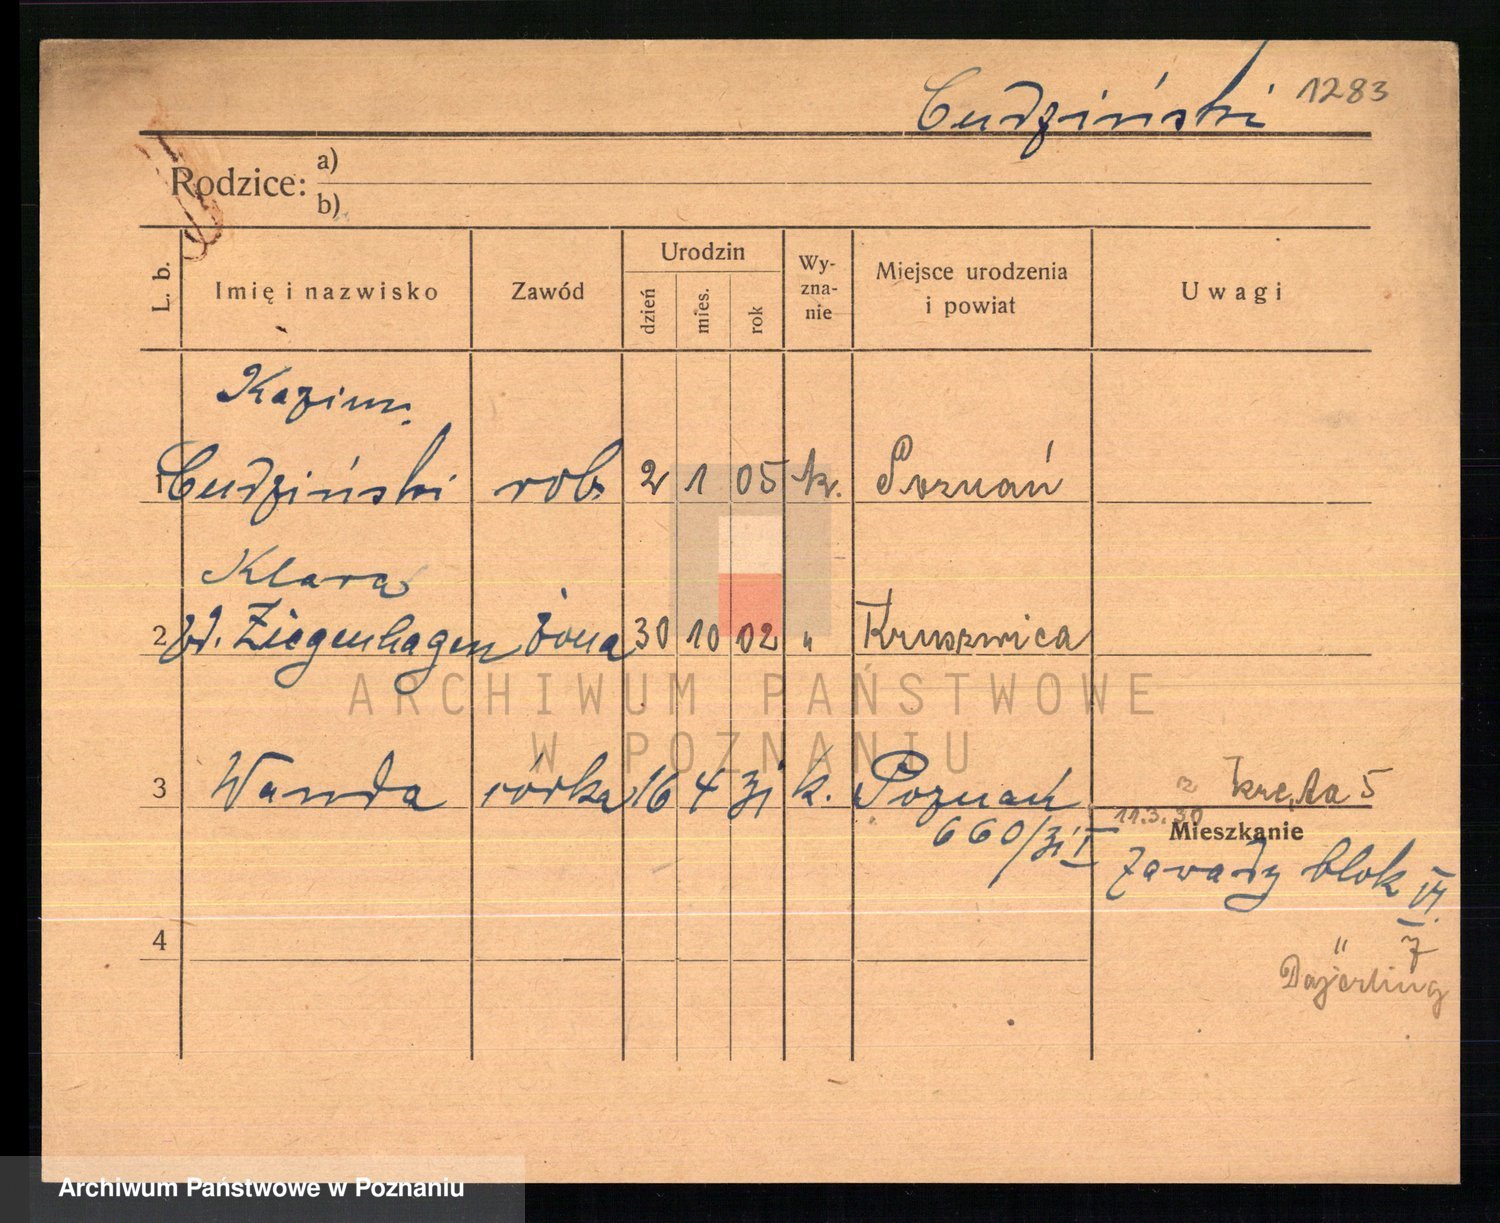 Cudziński 1283
Rodzice: a)
b)
L. b. Imię i nazwisko Zawód Urodzin dzień mies. rok Wy-zna-nie Miejsce urodzenia i powiat Uwagi
Kazim.
1 Cudziński rob. 2 1 05 k. Poznań
Klara
2 Ziegenhagen żona 30 10 02 " Kruszwica
3 Wanda córka 16 4 31 k. Poznań
660/31 I
z Kręta 5
11.3.30
Mieszkanie
Zawady blok VI.
" 7
4
ARCHIWUM PAŃSTWOWE
W POZNANIU
Archiwum Państwowe w Poznaniu